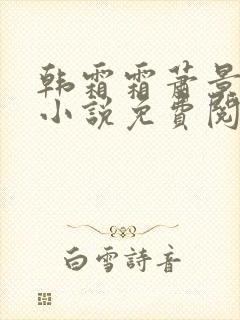 韩霜霜萧景
小说免费阅
白雪詩音